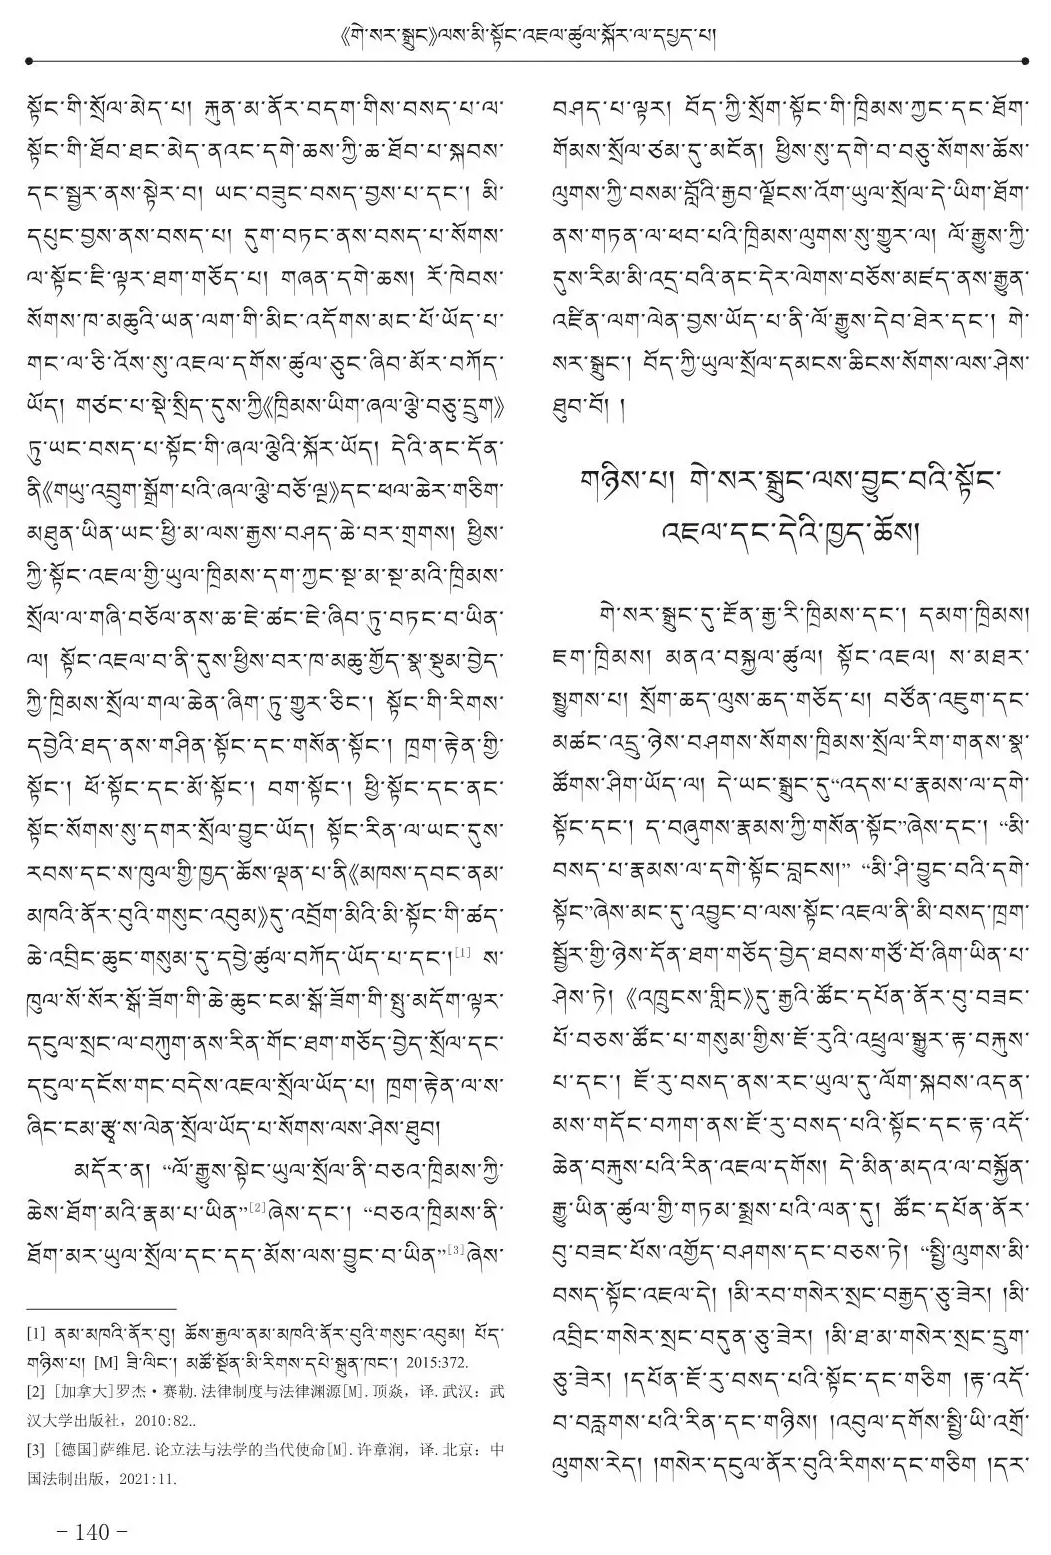 《གེ་སར་སྒྲུང》ལས་མི་སྟོང་འཇལ་ཚུལ་སྐོར་ལ་དཔྱད་པ།
སྟོང་གི་སྲོལ་མེད་པ། རྐུན་མ་ནོར་བདག་གིས་བསད་པ་ལ་
སྟོང་གི་ཐོབ་ཐང་མེད་ནའང་དགེ་ཆས་ཀྱི་ཆ་ཐོབ་པ་སྐབས་
དང་སྦྱར་ནས་སྟེར་བ། ཡང་བཟུང་བསད་བྱས་པ་དང་། མི་
དཔུང་བྱས་ནས་བསད་པ། དུག་བཏང་ནས་བསད་པ་སོགས་
ལ་སྟོང་ཇི་ལྟར་ཐག་གཅོད་པ། གཞན་དགེ་ཆས། རོ་ཁེབས་
སོགས་ཁ་མཆུའི་ཡན་ལག་གི་མིང་འདོགས་མང་པོ་ཡོད་པ་
གང་ལ་ཅི་འོས་སུ་འཇལ་དགོས་ཚུལ་ཅུང་ཞིབ་མོར་བཀོད་
ཡོད། གཙང་པ་སྡེ་སྲིད་དུས་ཀྱི《ཁྲིམས་ཡིག་ཞལ་ལྕེ་བཅུ་དྲུག》
ཏུ་ཡང་བསད་པ་སྟོང་གི་ཞལ་ལྕེའི་སྐོར་ཡོད། དེའི་ནང་དོན་
ནི《གཡུ་འབྲུག་སྒྲོག་པའི་ཞལ་ལྕེ་བཅོ་ལྔ》དང་ཕལ་ཆེར་གཅིག་
མཐུན་ཡིན་ཡང་ཕྱི་མ་ལས་རྒྱས་བཤད་ཆེ་བར་གྲགས། ཕྱིས་
ཀྱི་སྟོང་འཇལ་གྱི་ཡུལ་ཁྲིམས་དག་ཀྱང་སྔ་མ་སྔ་མའི་ཁྲིམས་
སྲོལ་ལ་གཞི་བཅོལ་ནས་ཆ་ཇེ་ཚང་ཇེ་ཞིབ་ཏུ་བཏང་བ་ཡིན་
ལ། སྟོང་འཇལ་བ་ནི་དུས་ཕྱིས་བར་ཁ་མཆུ་གྱོད་སྣ་སྡུམ་བྱེད་
ཀྱི་ཁྲིམས་སྲོལ་གལ་ཆེན་ཞིག་ཏུ་གྱུར་ཅིང་། སྟོང་གི་རིགས་
དབྱེའི་ཐད་ནས་གཤིན་སྟོང་དང་གསོན་སྟོང་། ཁྲག་རྟེན་གྱི་
སྟོང་། ཕོ་སྟོང་དང་མོ་སྟོང་། བག་སྟོང་། ཕྱི་སྟོང་དང་ནང་
སྟོང་སོགས་སུ་དགར་སྲོལ་བྱུང་ཡོད། སྟོང་རིན་ལ་ཡང་དུས་
རབས་དང་ས་ཁུལ་གྱི་ཁྱད་ཆོས་ལྡན་པ་ནི《མཁས་དབང་ནམ་
མཁའི་ནོར་བུའི་གསུང་འབུམ》དུ་འབྲོག་མིའི་མི་སྟོང་གི་ཚད་
ཆེ་འབྲིང་ཆུང་གསུམ་དུ་དབྱེ་ཚུལ་བཀོད་ཡོད་པ་དང་།[1] ས་
ཁུལ་སོ་སོར་སྒོ་ཟོག་གི་ཆེ་ཆུང་ངམ་སྒོ་ཟོག་གི་སྤུ་མདོག་ལྟར་
དངུལ་སྲང་ལ་བཀུག་ནས་རིན་གོང་ཐག་གཅོད་བྱེད་སྲོལ་དང་
དངུལ་དངོས་གང་བདེས་འཇལ་སྲོལ་ཡོད་པ། ཁྲག་རྟེན་ལ་ས་
ཞིང་ངམ་རྩྭ་ས་ལེན་སྲོལ་ཡོད་པ་སོགས་ལས་ཤེས་ཐུབ།
མདོར་ན། “ལོ་རྒྱུས་སྟེང་ཡུལ་སྲོལ་ནི་བཅའ་ཁྲིམས་ཀྱི་
ཆེས་ཐོག་མའི་རྣམ་པ་ཡིན”[2]ཞེས་དང་། “བཅའ་ཁྲིམས་ནི་
ཐོག་མར་ཡུལ་སྲོལ་དང་དད་མོས་ལས་བྱུང་བ་ཡིན”[3]ཞེས་
[1] ནམ་མཁའི་ནོར་བུ། ཆོས་རྒྱལ་ནམ་མཁའི་ནོར་བུའི་གསུང་འབུམ། པོད་
གཉིས་པ། [M] ཟི་ལིང་། མཚོ་སྔོན་མི་རིགས་དཔེ་སྐྲུན་ཁང་། 2015:372.
[2] [加拿大]罗杰·赛勒.法律制度与法律渊源[M].顶焱，译.武汉：武
汉大学出版社，2010:82..
[3] [德国]萨维尼.论立法与法学的当代使命[M].许章润，译.北京：中
国法制出版，2021:11.
- 140 -
བཤད་པ་ལྟར། བོད་ཀྱི་སྲོག་སྟོང་གི་ཁྲིམས་ཀྱང་དང་ཐོག་
གོམས་སྲོལ་ཙམ་དུ་མངོན། ཕྱིས་སུ་དགེ་བ་བཅུ་སོགས་ཆོས་
ལུགས་ཀྱི་བསམ་བློའི་རྒྱབ་ལྗོངས་འོག་ཡུལ་སྲོལ་དེ་ཡིག་ཐོག་
ནས་གཏན་ལ་ཕབ་པའི་ཁྲིམས་ལུགས་སུ་གྱུར་ལ། ལོ་རྒྱུས་ཀྱི་
དུས་རིམ་མི་འདྲ་བའི་ནང་དེར་ལེགས་བཅོས་མཛད་ནས་རྒྱུན་
འཛིན་ལག་ལེན་བྱས་ཡོད་པ་ནི་ལོ་རྒྱུས་དེབ་ཐེར་དང་། གེ་
སར་སྒྲུང་། བོད་ཀྱི་ཡུལ་སྲོལ་དམངས་ཆིངས་སོགས་ལས་ཤེས་
ཐུབ་བོ། །
གཉིས་པ། གེ་སར་སྒྲུང་ལས་བྱུང་བའི་སྟོང་
འཇལ་དང་དེའི་ཁྱད་ཆོས།
གེ་སར་སྒྲུང་དུ་རྔོན་རྒྱ་རི་ཁྲིམས་དང་། དམག་ཁྲིམས།
ཇག་ཁྲིམས། མནའ་བསྐྱལ་ཚུལ། སྟོང་འཇལ། ས་མཐར་
སྤྱུགས་པ། སྲོག་ཆད་ལུས་ཆད་གཅོད་པ། བཙོན་འཇུག་དང་
མཚང་འདྲུ་ཉེས་བཤགས་སོགས་ཁྲིམས་སྲོལ་རིག་གནས་སྣ་
ཚོགས་ཤིག་ཡོད་ལ། དེ་ཡང་སྒྲུང་དུ“འདས་པ་རྣམས་ལ་དགེ་
སྟོང་དང་། ད་བཞུགས་རྣམས་ཀྱི་གསོན་སྟོང”ཞེས་དང་། “མི་
བསད་པ་རྣམས་ལ་དགེ་སྟོང་བླངས།” “མི་ཤི་བྱུང་བའི་དགེ་
སྟོང”ཞེས་མང་དུ་འབྱུང་བ་ལས་སྟོང་འཇལ་ནི་མི་བསད་ཁྲག་
སྦྱོར་གྱི་ཉེས་དོན་ཐག་གཅོད་བྱེད་ཐབས་གཙོ་བོ་ཞིག་ཡིན་པ་
ཤེས་ཏེ། 《འཁྲུངས་གླིང》དུ་རྒྱའི་ཚོང་དཔོན་ནོར་བུ་བཟང་
པོ་བཅས་ཚོང་པ་གསུམ་གྱིས་ཇོ་རུའི་འཕྲུལ་སྒྱུར་རྟ་བརྐུས་
པ་དང་། ཇོ་རུ་བསད་ནས་རང་ཡུལ་དུ་ལོག་སྐབས་འདན་
མས་གདོང་བཀག་ནས་ཇོ་རུ་བསད་པའི་སྟོང་དང་རྟ་འདོ་
ཆེན་བརྐུས་པའི་རིན་འཇལ་དགོས། དེ་མིན་མདའ་ལ་བསྐྱོན་
རྒྱུ་ཡིན་ཚུལ་གྱི་གཏམ་སྨྲས་པའི་ལན་དུ། ཚོང་དཔོན་ནོར་
བུ་བཟང་པོས་འགྱོད་བཤགས་དང་བཅས་ཏེ། “སྤྱི་ལུགས་མི་
བསད་སྟོང་འཇལ་དེ། །མི་རབ་གསེར་སྲང་བརྒྱད་ཅུ་ཟེར། །མི་
འབྲིང་གསེར་སྲང་བདུན་ཅུ་ཟེར། །མི་ཐ་མ་གསེར་སྲང་དྲུག་
ཅུ་ཟེར། །དཔོན་ཇོ་རུ་བསད་པའི་སྟོང་དང་གཅིག །རྟ་འདོ་
བ་བརླགས་པའི་རིན་དང་གཉིས། །འབུལ་དགོས་སྤྱི་ཡི་འགྲོ་
ལུགས་རེད། །གསེར་དངུལ་ནོར་བུའི་རིགས་དང་གཅིག །དར་